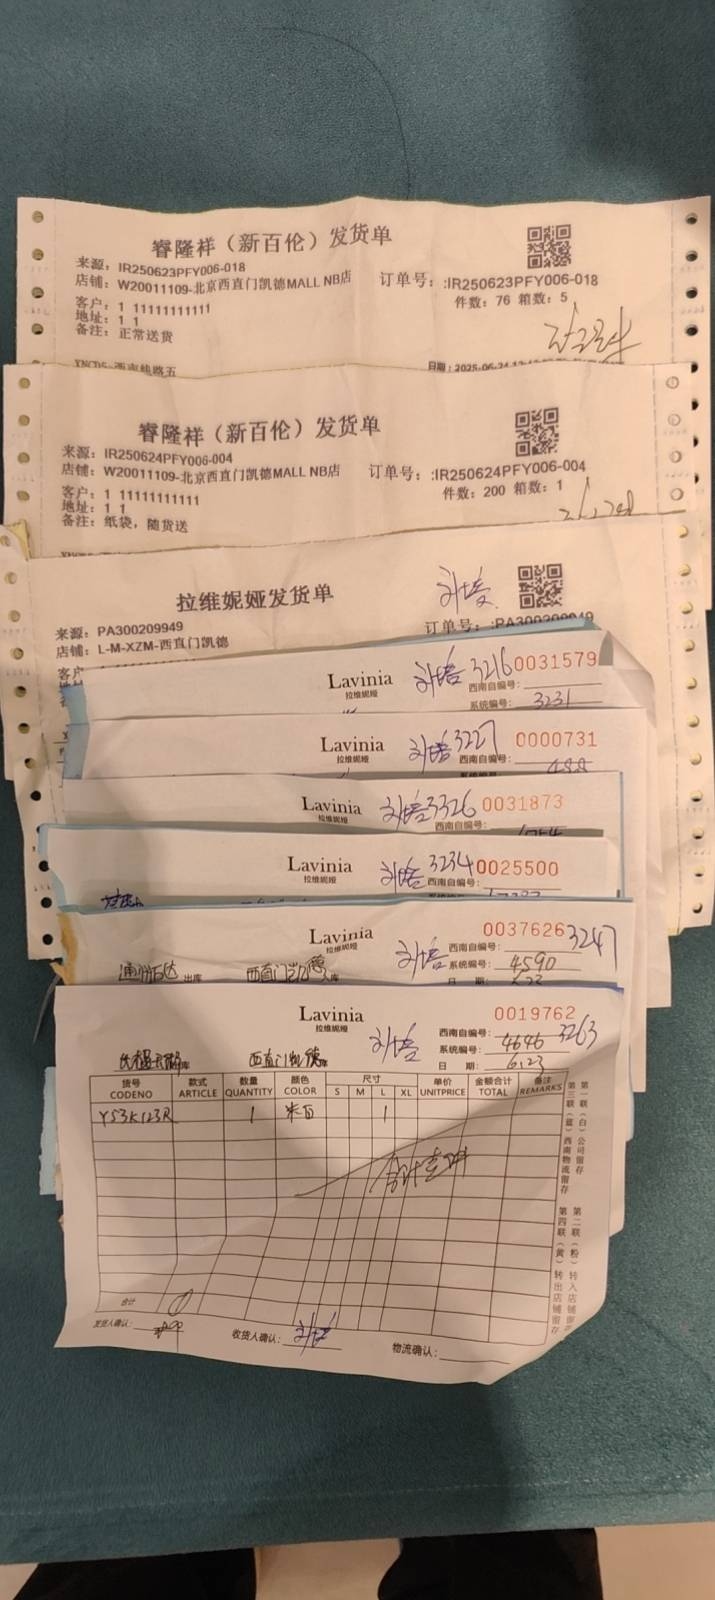 睿隆祥（新百伦）发货单
来源：IR250623PFY006-018
店铺：W20011109-北京西直门凯德MALL NB店
订单号：:IR250623PFY006-018
客户：1 11111111111
件数：76 箱数：5
地址：1 1
备注：正常送货
睿隆祥（新百伦）发货单
来源：IR250624PFY006-004
店铺：W20011109-北京西直门凯德MALL NB店
订单号：:IR250624PFY006-004
客户：1 11111111111
件数：200 箱数：1
地址：1 1
备注：纸袋，随货送
拉维妮娅发货单
刘培
来源：PA300209949
订单号：:PA300209949
店铺：L-M-XZM-西直门凯德
Lavinia
拉维妮娅
刘培 3216 0031579
西南自编号：
系统编号： 3231
Lavinia
拉维妮娅
刘培 3227 0000731
西南自编号：
Lavinia
拉维妮娅
刘培 3326 0031873
西南自编号：
Lavinia
拉维妮娅
刘培 3234 0025500
西南自编号：
Lavinia
拉维妮娅
刘培 0037626 3247
西南自编号：
系统编号： 4590
日 期：
通州万达 出库 西直门凯德 入库
Lavinia
拉维妮娅
刘培 0019762
西南自编号： 3263
系统编号： 4646
日 期： 6.23
西直门凯德
货号 款式 数量 颜色 尺寸 单价 金额合计 备注
CODENO ARTICLE QUANTITY COLOR S M L XL UNITPRICE TOTAL REMARKS
Y53K123R 1 米白 1
合计壹件
合计 ①
发货人确认： 收货人确认： 刘培 物流确认：
第一联（白）公司留存
第二联（粉）转入店铺留存
第三联（蓝）西南物流留存
第四联（黄）转出店铺留存